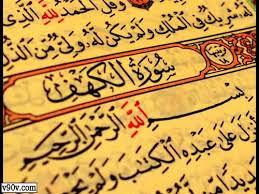 وَقُلِ الْحَمْدُ لِلَّهِ الَّذِي
شَرِيكٌ فِي الْمُلْكِ وَلَمْ يَكُن لَّهُ وَلِيٌّ مِّنَ الذُّلِّ
سُورَةُ الْكَهْفِ
بِسْمِ اللَّهِ الرَّحْمَٰنِ الرَّحِيمِ
نزَلَ عَلَىٰ عَبْدِهِ الْكِتَابَ وَلَمْ
v90v.com